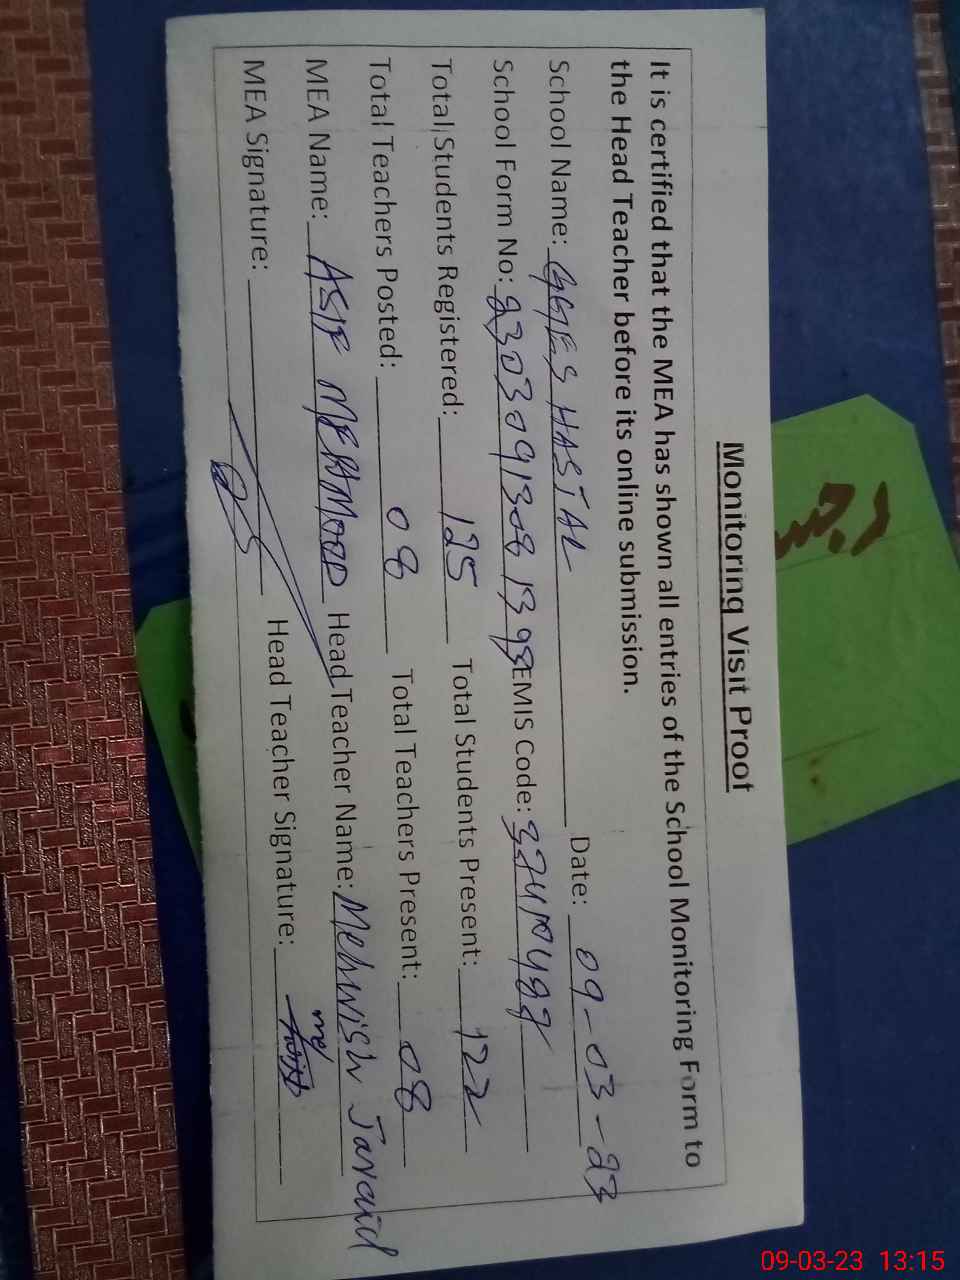 Monitoring Visit Proof
It is certified that the MEA has shown all entries of the School Monitoring Form to
the Head Teacher before its online submission.
School Name: GGES HASTAL Date: 09-03-23
School Form No: EMIS Code:
Total Students Registered: 125 Total Students Present: 122
Total Teachers Posted: 08 Total Teachers Present: 08
MEA Name: ASIF MEHMOOD Head Teacher Name: Mehwish Javaid
MEA Signature: Head Teacher Signature:
09-03-23 13:15